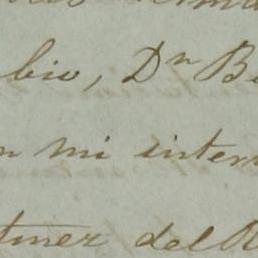 bio, Dn B
n mi inter
tinez del R